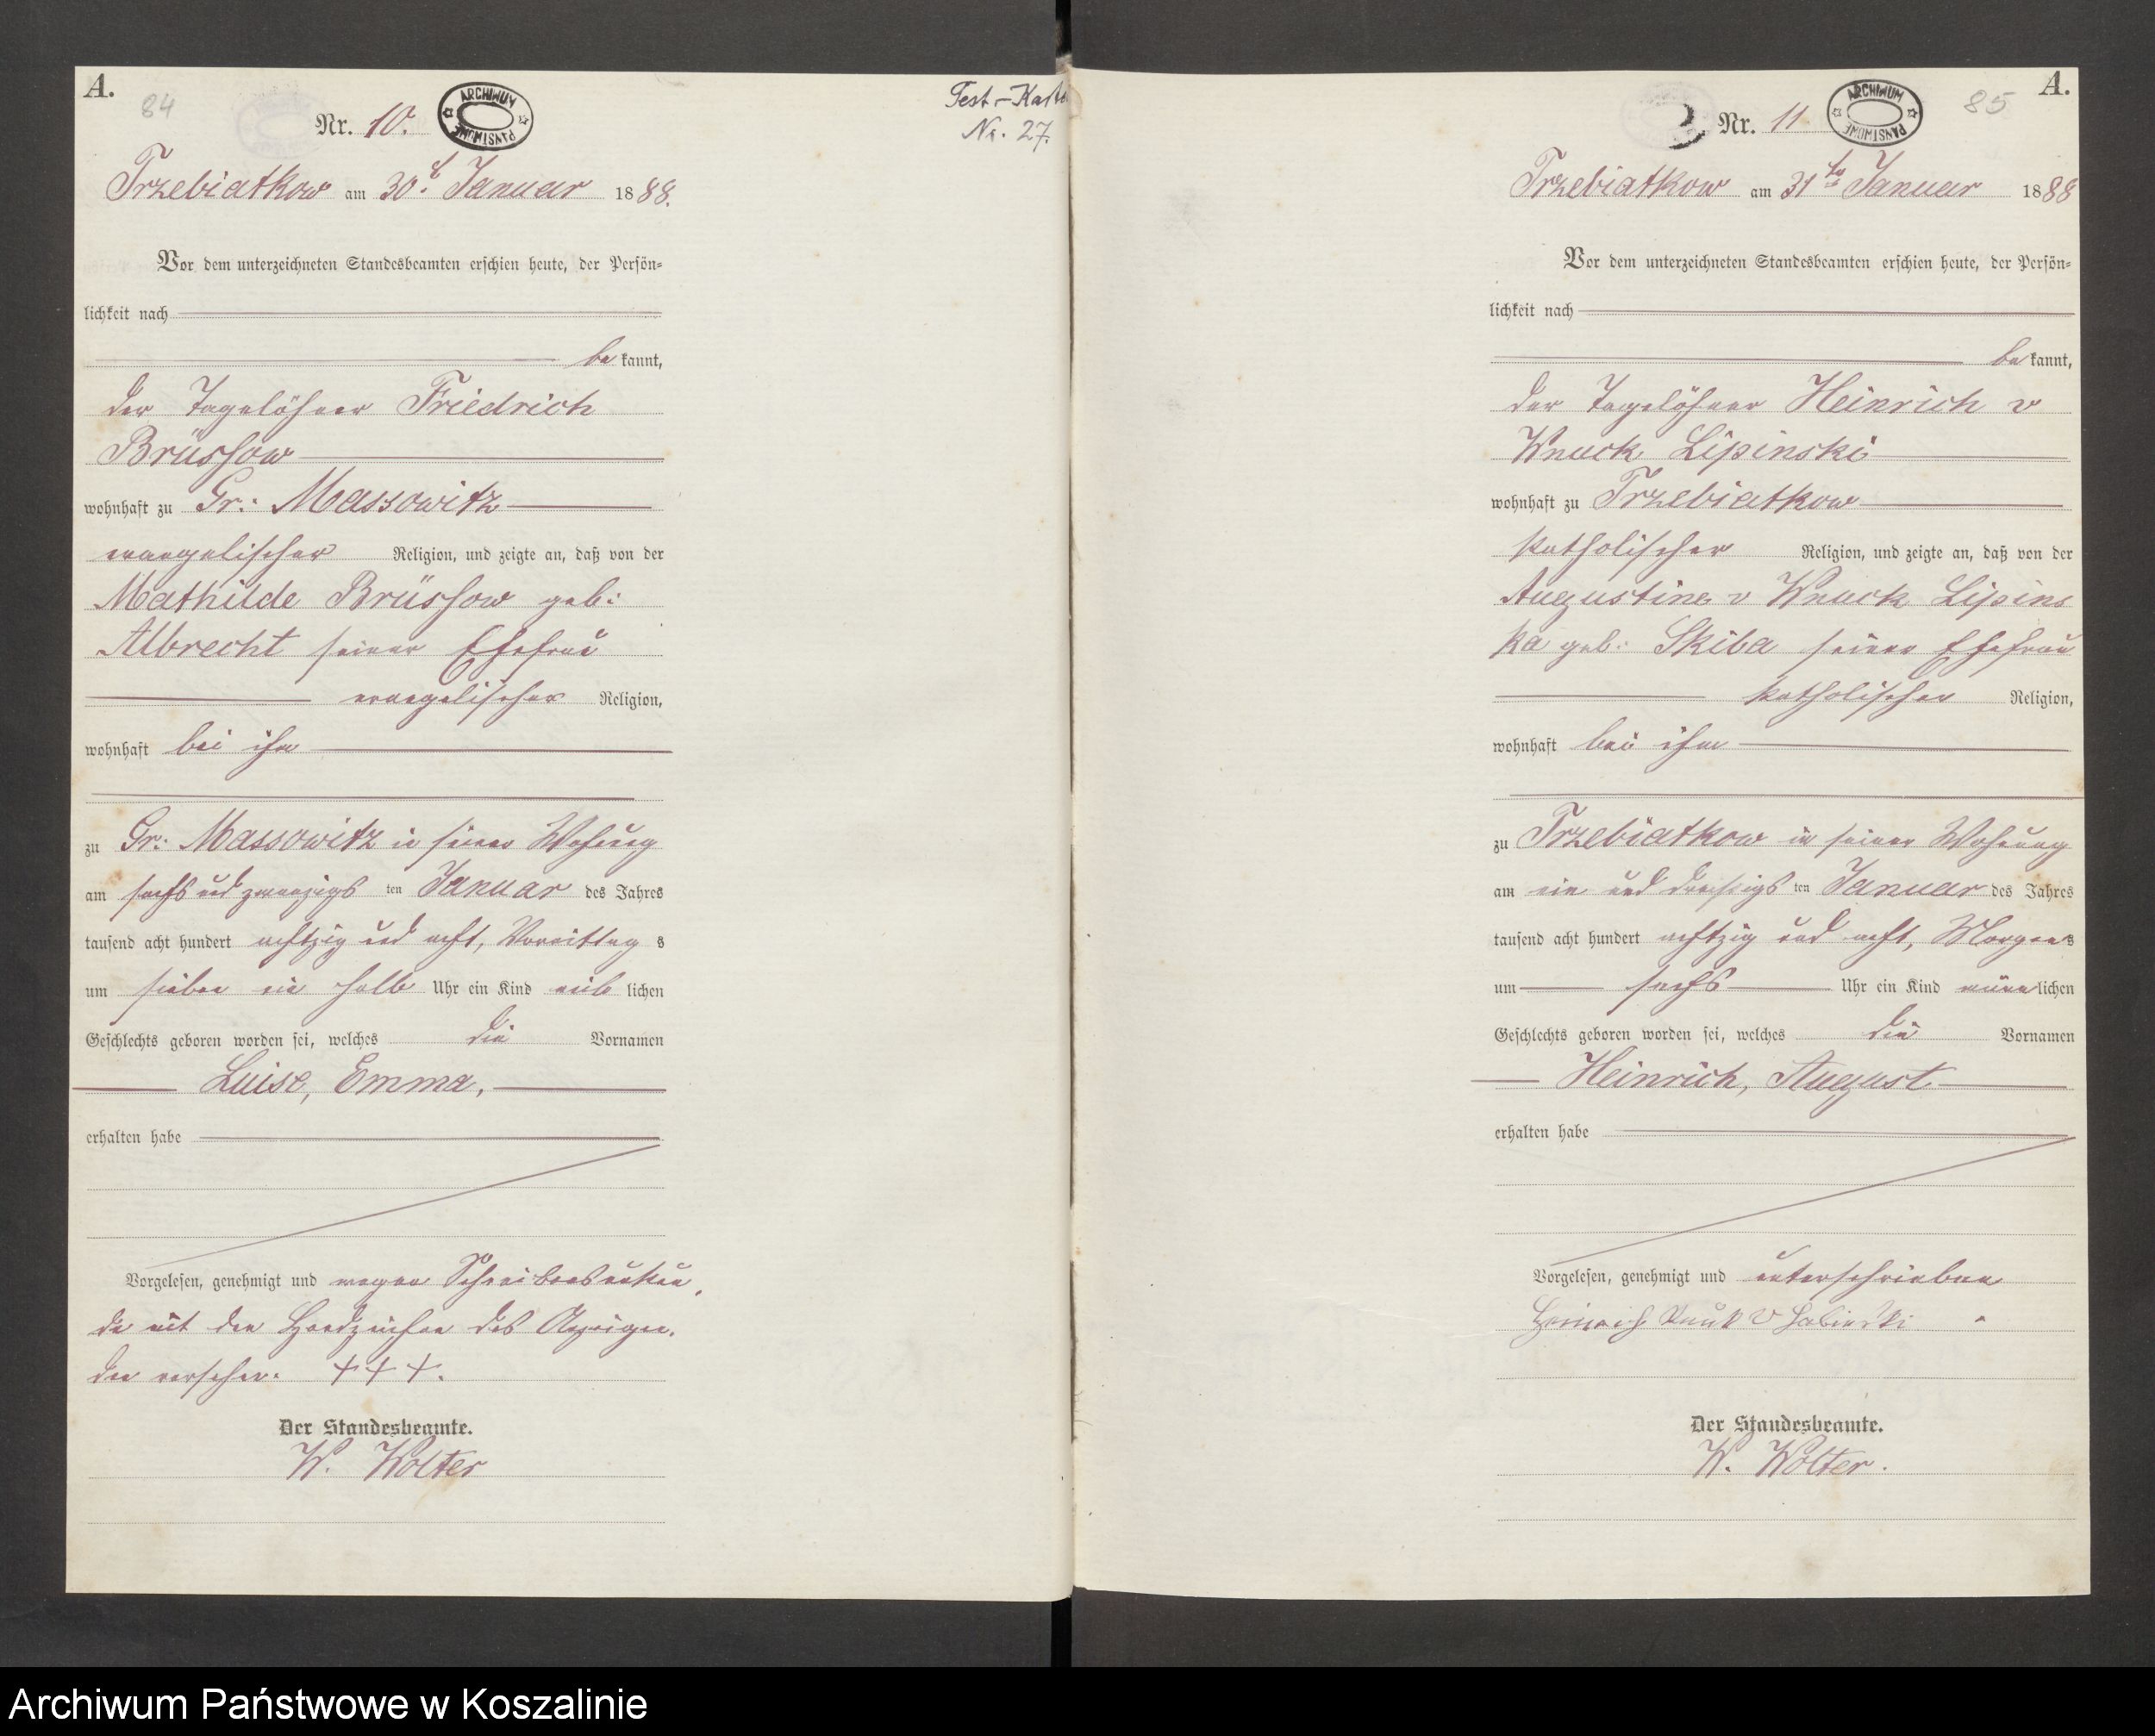 A.
84
Nr. 10.
ARCHIWUM PAŃSTWOWE
Test-Karte
Nr. 27.
Trzebiatkow am 30t. Januar 1888.
Vor dem unterzeichneten Standesbeamten erschien heute, der Persön-
lichkeit nach
be kannt,
der Tagelöhner Friedrich
Brüssow
wohnhaft zu Gr: Massowitz
evangelischer Religion, und zeigte an, daß von der
Mathilde Brüssow geb:
Albrecht seiner Ehefrau
evangelischer Religion,
wohnhaft bei ihm
zu Gr: Massowitz in seiner Wohnung
am sechs und zwanzigs ten Januar des Jahres
tausend acht hundert achtzig und acht, Vormittag s
um sieben ein halb Uhr ein Kind weib lichen
Geschlechts geboren worden sei, welches die Vornamen
Luise, Emma,
erhalten habe
Vorgelesen, genehmigt und wegen Schreibensunkun
de mit den Handzeichen des Anzeigen
den versehen. + + +.
Der Standesbeamte.
W. Wolter
A.
85
Nr. 11
ARCHIWUM PAŃSTWOWE
Trzebiatkow am 31ten Januar 1888
Vor dem unterzeichneten Standesbeamten erschien heute, der Persön-
lichkeit nach
be kannt,
der Tagelöhner Heinrich v
Wnuck Lipinski
wohnhaft zu Trzebiatkow
katholischer Religion, und zeigte an, daß von der
Augustine v Wnuck Lipins
ka geb: Skiba seiner Ehefrau
katholischer Religion,
wohnhaft bei ihm
zu Trzebiatkow in seiner Wohnung
am ein und dreißigs ten Januar des Jahres
tausend acht hundert achtzig und acht, Morgens
um sechs Uhr ein Kind männ lichen
Geschlechts geboren worden sei, welches die Vornamen
Heinrich, August
erhalten habe
Vorgelesen, genehmigt und unterschrieben
Heinrich v
Der Standesbeamte.
W. Wolter.
Archiwum Państwowe w Koszalinie